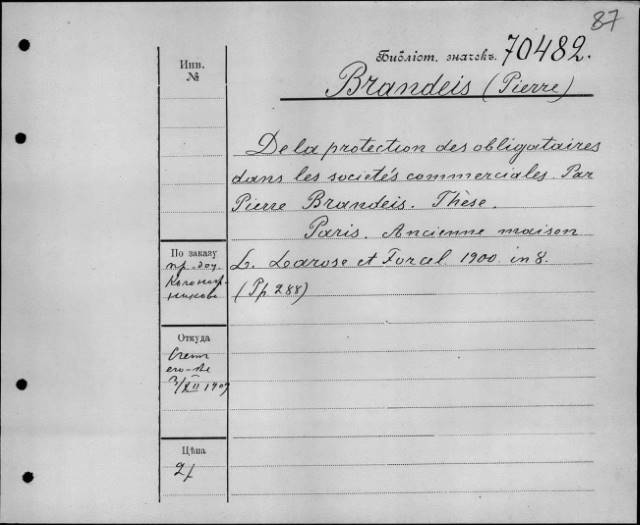 87
Библіот. значекъ 70482.
Brandeis (Pierre)
De la protection des obligataires
dans les societés commerciales. Par
Pierre Brandeis. Thèse.
Paris. Ancienne maison
L. Larose et Forcel 1900. in 8.
(Pp 288)
Инв.
№
По заказу
пр.-доц.
Откуда
3/XII 1909
Цѣна
2f